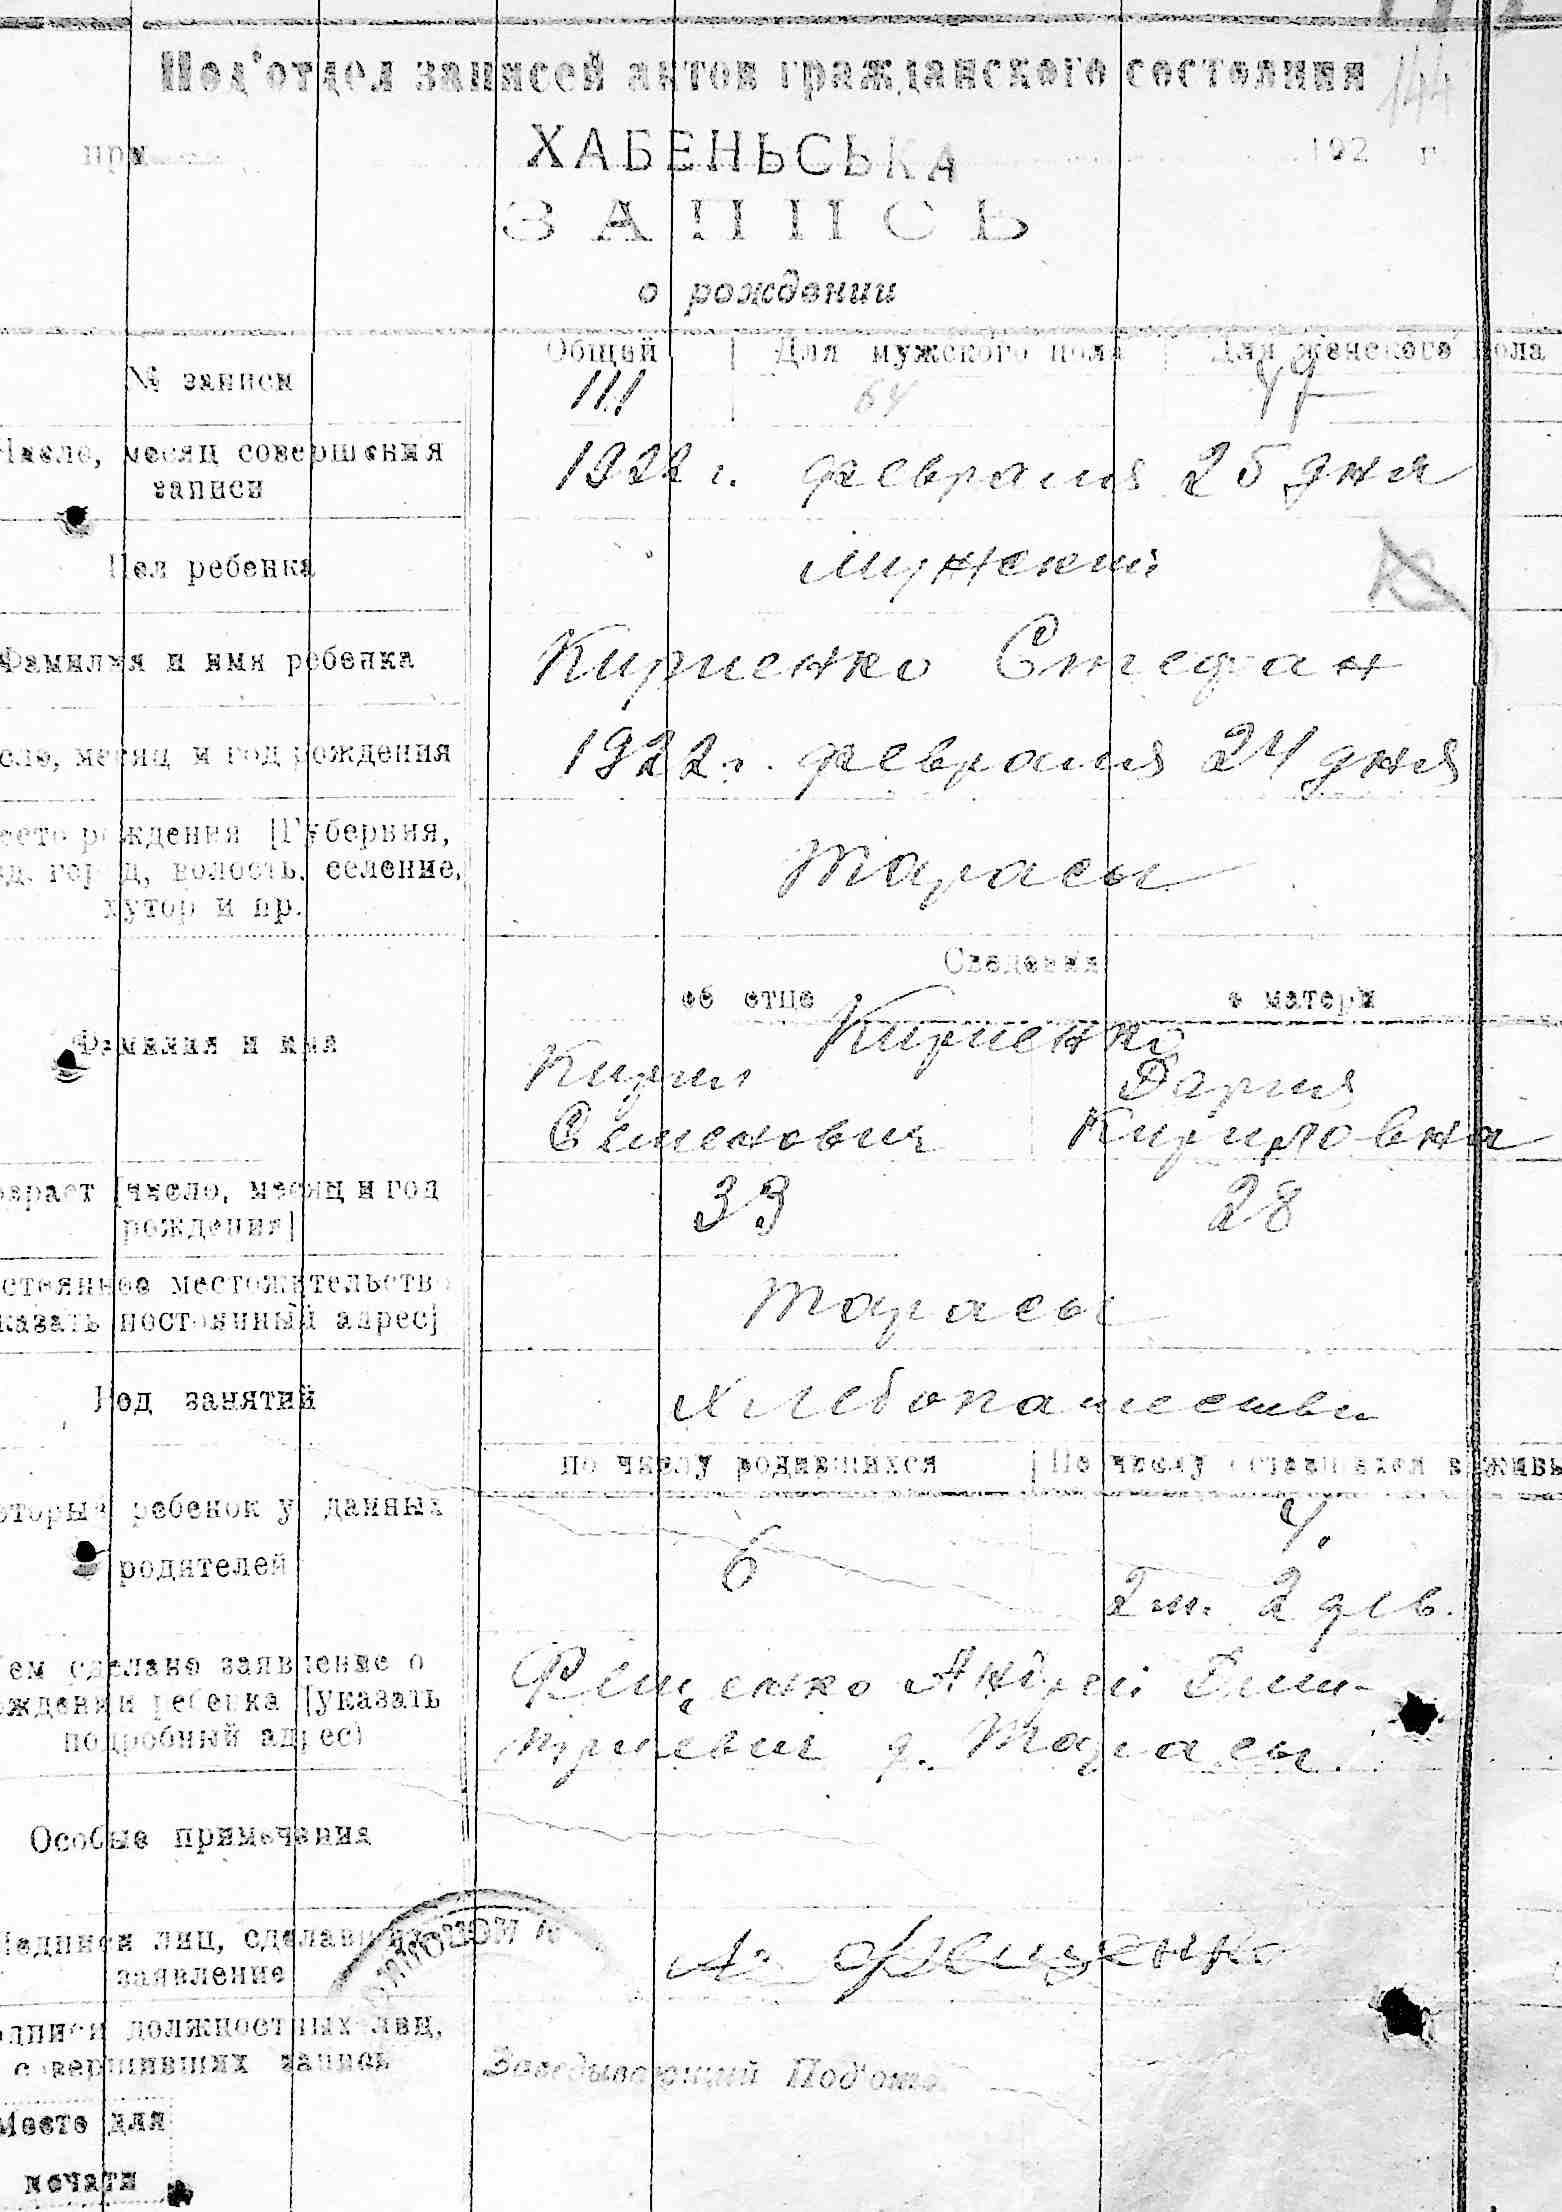 Под'отдел записей актов гражданского состояния 144
при ХАБЕНЬСЬКА 192 г.
ЗАПИСЬ
о рождении
№ записи
Общей | Для мужского пола | Для женского пола
111 64 47
Число, месяц совершения
записи
1922 г. февраля 25 дня
Пол ребенка
мужский
Фамилия и имя ребенка
Кириенко Стефан
число, месяц и год рождения
1922 г. февраля 24 дня
место рождения [Губерния,
уезд, город, волость, селение,
хутор и пр.
Тарасы
Сведения
об отце о матери
Фамилия и имя
Кириенко
Кирил Дария
Семенович Кириловна
возраст [число, месяц и год
рождения]
39 28
постоянное местожительство
указать постоянный адрес]
Тарасы
Род занятий
Хлебопашество
по числу родившихся | По числу оставшихся в живых
который ребенок у данных
родителей
6 4.
2 м. 2 дев.
Кем сделано заявление о
рождении ребенка [указать
подробный адрес)
Фещенко Андрей Дми-
триевич д. Тарасы
Особые примечания
Подписи лиц, сделавших
заявление
А. Фещенко
подписи должностных лиц,
совершивших запись
Заведывающий Под'отд.
Место для
печати